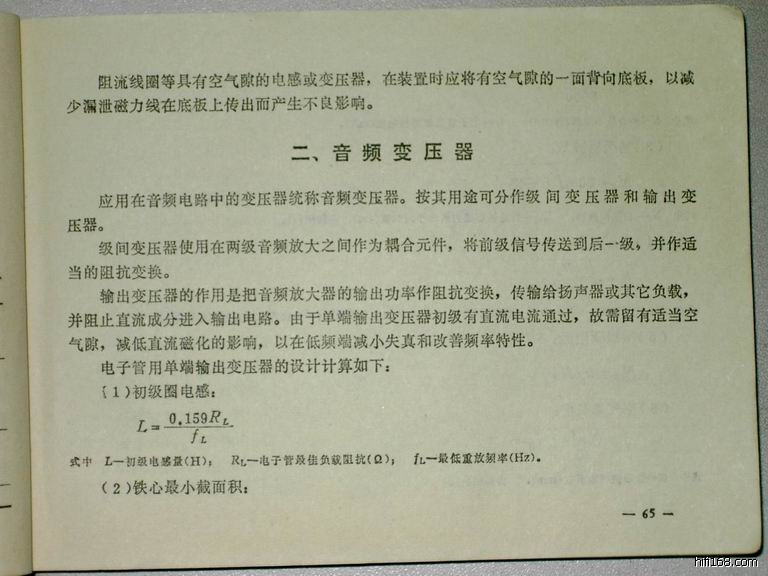 阻流线圈等具有空气隙的电感或变压器，在装置时应将有空气隙的一面背向底板，以减
少漏泄磁力线在底板上传出而产生不良影响。
二、音频变压器
应用在音频电路中的变压器统称音频变压器。按其用途可分作级间变压器和输出变
压器。
级间变压器使用在两级音频放大之间作为耦合元件，将前级信号传送到后一级，并作适
当的阻抗变换。
输出变压器的作用是把音频放大器的输出功率作阻抗变换，传输给扬声器或其它负载，
并阻止直流成分进入输出电路。由于单端输出变压器初级有直流电流通过，故需留有适当空
气隙，减低直流磁化的影响，以在低频端减小失真和改善频率特性。
电子管用单端输出变压器的设计计算如下：
(1)初级圈电感：
L=0.159R_L/f_L
式中 L—初级电感量(H)； R_L—电子管最佳负载阻抗(Ω)； f_L—最低重放频率(Hz)。
(2)铁心最小截面积：
— 65 —
hifi168.com